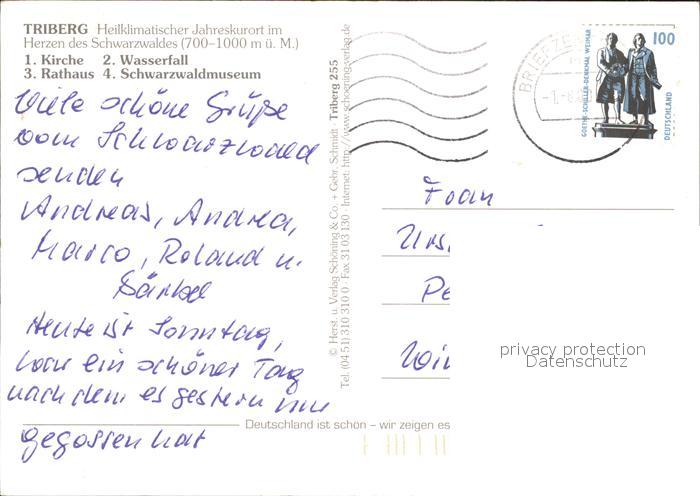 TRIBERG Heilklimatischer Jahreskurort im
Herzen des Schwarzwaldes (700–1000 m ü. M.)
1. Kirche 2. Wasserfall
3. Rathaus 4. Schwarzwaldmuseum
Viele schöne Grüße
vom Schwarzwald
senden
Andreas, Andrea,
Marco, Roland u.
Bärbel
Heute ist Sonntag,
war ein schöner Tag
nachdem es gestern nur
gegossen hat
© Herst. u. Verlag Schöning & Co. + Gebr. Schmidt · Triberg 255
Tel. (04 51) 310 310 0 · Fax 31 03 130 · Internet: http://www.schoening-verlag.de
BRIEFZE
100
GOETHE-SCHILLER-DENKMAL WEIMAR
DEUTSCHLAND
Frau
Urs.
Pe
Win
privacy protection
Datenschutz
Deutschland ist schön – wir zeigen es